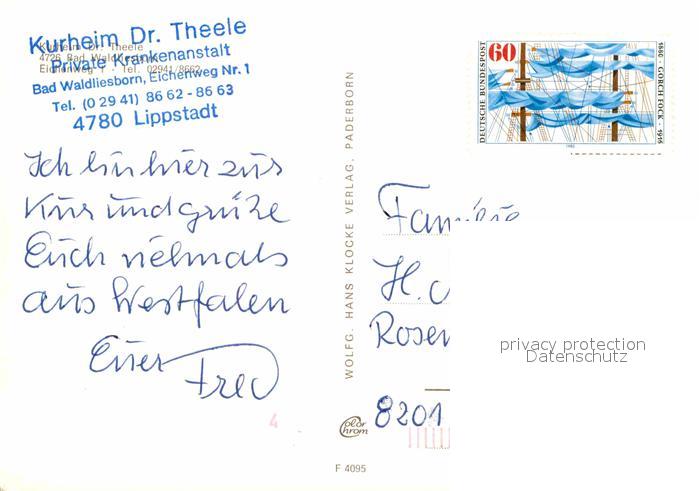 Kurheim Dr. Theele
Private Krankenanstalt
Bad Waldliesborn, Eichenweg Nr. 1
Tel. (0 29 41) 86 62 - 86 63
4780 Lippstadt
Kurheim Dr. Theele
4726 Bad Waldliesborn
Eichenweg 1 · Tel. 02941/8662
Ich bin hier zur
Kur und grüße
Euch vielmals
aus Westfalen
Euer Fred
4
WOLFG. HANS KLOCKE VERLAG, PADERBORN
Color chrom
F 4095
DEUTSCHE BUNDESPOST
60
1880 · GORCH FOCK · 1916
1980
Familie
H.
Rosen
8201
privacy protection
Datenschutz